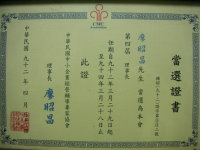 當選證書
廖昭昌 先生 當選為本會
第四屆 理事長
任期自九十二年三月二十九日起
至九十四年三月二十八日止
此證
中華民國中小企業經營輔導專家協會
理事長 廖昭昌
中華民國九十二年四月